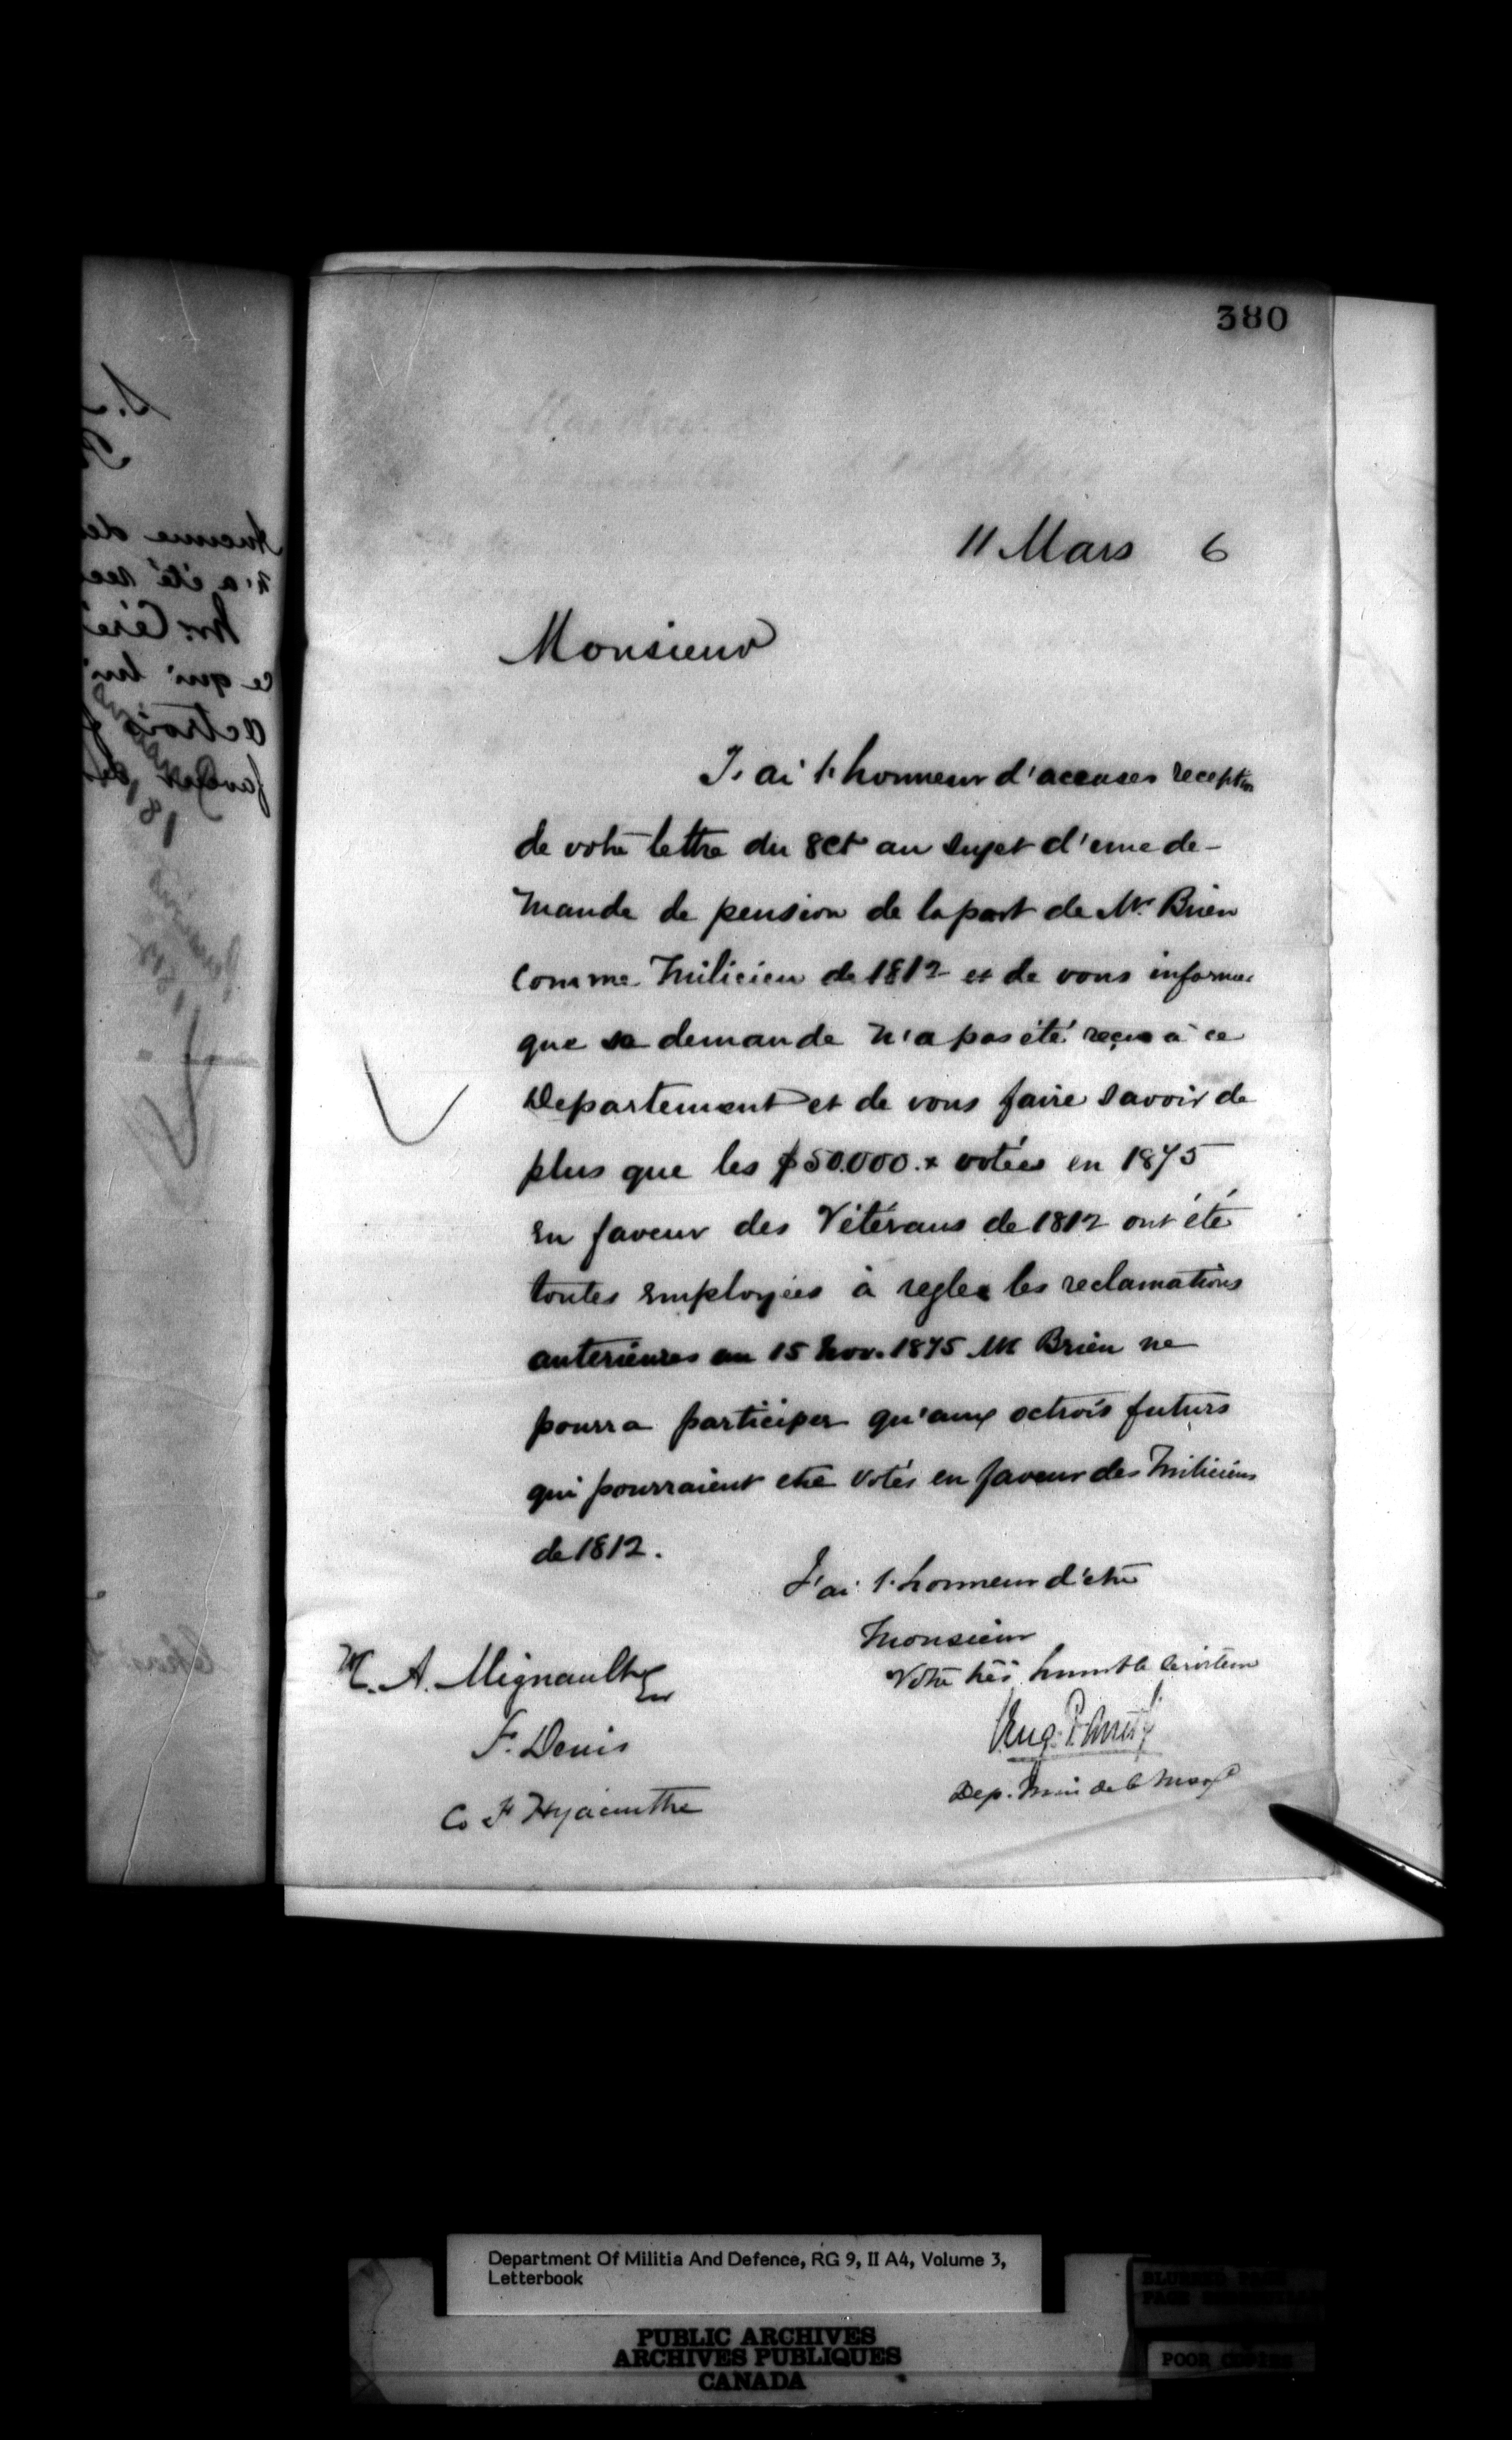 380
11 Mars 6
Monsieur
J'ai l'honneur d'accuser reception
de votre lettre du 8 ct au sujet d'une de-
mande de pension de la part de Mr Brien
comme Milicien de 1812 et de vous informer
que sa demande n'a pas été reçue à ce
Departement et de vous faire savoir de
plus que les $50.000.x votées en 1875
en faveur des Vétérans de 1812 ont été
toutes employées à regler les reclamations
anterieures au 15 Nov. 1875 Mr Brien ne
pourra participer qu'aux octrois futurs
qui pourraient etre votés en faveur des Miliciens
de 1812.
J'ai l'honneur d'etre
Monsieur
Votre très humble Serviteur
Dep. Min de la
A. Mignault
Denis
Co Hyacinthe
Department Of Militia And Defence, RG 9, II A4, Volume 3,
Letterbook
PUBLIC ARCHIVES
ARCHIVES PUBLIQUES
CANADA
POOR